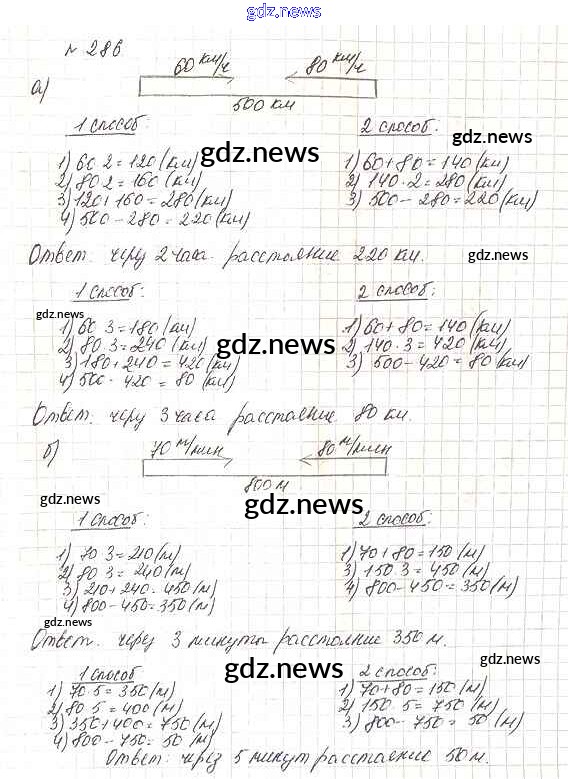 gdz.news
№ 286
gdz.news
а) 60 км/ч 80 км/ч
500 км
1 способ: 2 способ:
gdz.news
gdz.news
1) 60 2 = 120 (км) 1) 60 + 80 = 140 (км)
2) 80 2 = 160 (км) 2) 140 · 2 = 280 (км)
3) 120 + 160 = 280 (км) 3) 500 - 280 = 220 (км)
4) 500 - 280 = 220 (км)
gdz.news
Ответ. через 2 часа расстояние 220 км.
gdz.news
1 способ: 2 способ:
gdz.news
gdz.news
1) 60 3 = 180 (км) 1) 60 + 80 = 140 (км)
2) 80 3 = 240 (км) 2) 140 · 3 = 420 (км)
gdz.news
3) 180 + 240 = 420 (км) 3) 500 - 420 = 80 (км)
4) 500 - 420 = 80 (км)
Ответ. через 3 часа расстояние 80 км.
б) 70 м/мин 80 м/мин
gdz.news
800 м
gdz.news
gdz.news
gdz.news
1 способ: 2 способ:
1) 70 3 = 210 (м) 1) 70 + 80 = 150 (м)
2) 80 3 = 240 (м) 3) 150 3 = 450 (м)
3) 210 + 240 = 450 (м) 4) 800 - 450 = 350 (м)
4) 800 - 450 = 350 (м)
gdz.news
Ответ. через 3 минуты расстояние 350 м.
gdz.news
gdz.news
gdz.news
1 способ 2 способ:
1) 70 · 5 = 350 (м) 1) 70 + 80 = 150 (м)
2) 80 5 = 400 (м) 2) 150 · 5 = 750 (м)
3) 350 + 400 = 750 (м) 3) 800 - 750 = 50 (м)
gdz.news
4) 800 - 750 = 50 (м)
Ответ: через 5 минут расстояние 50 м.